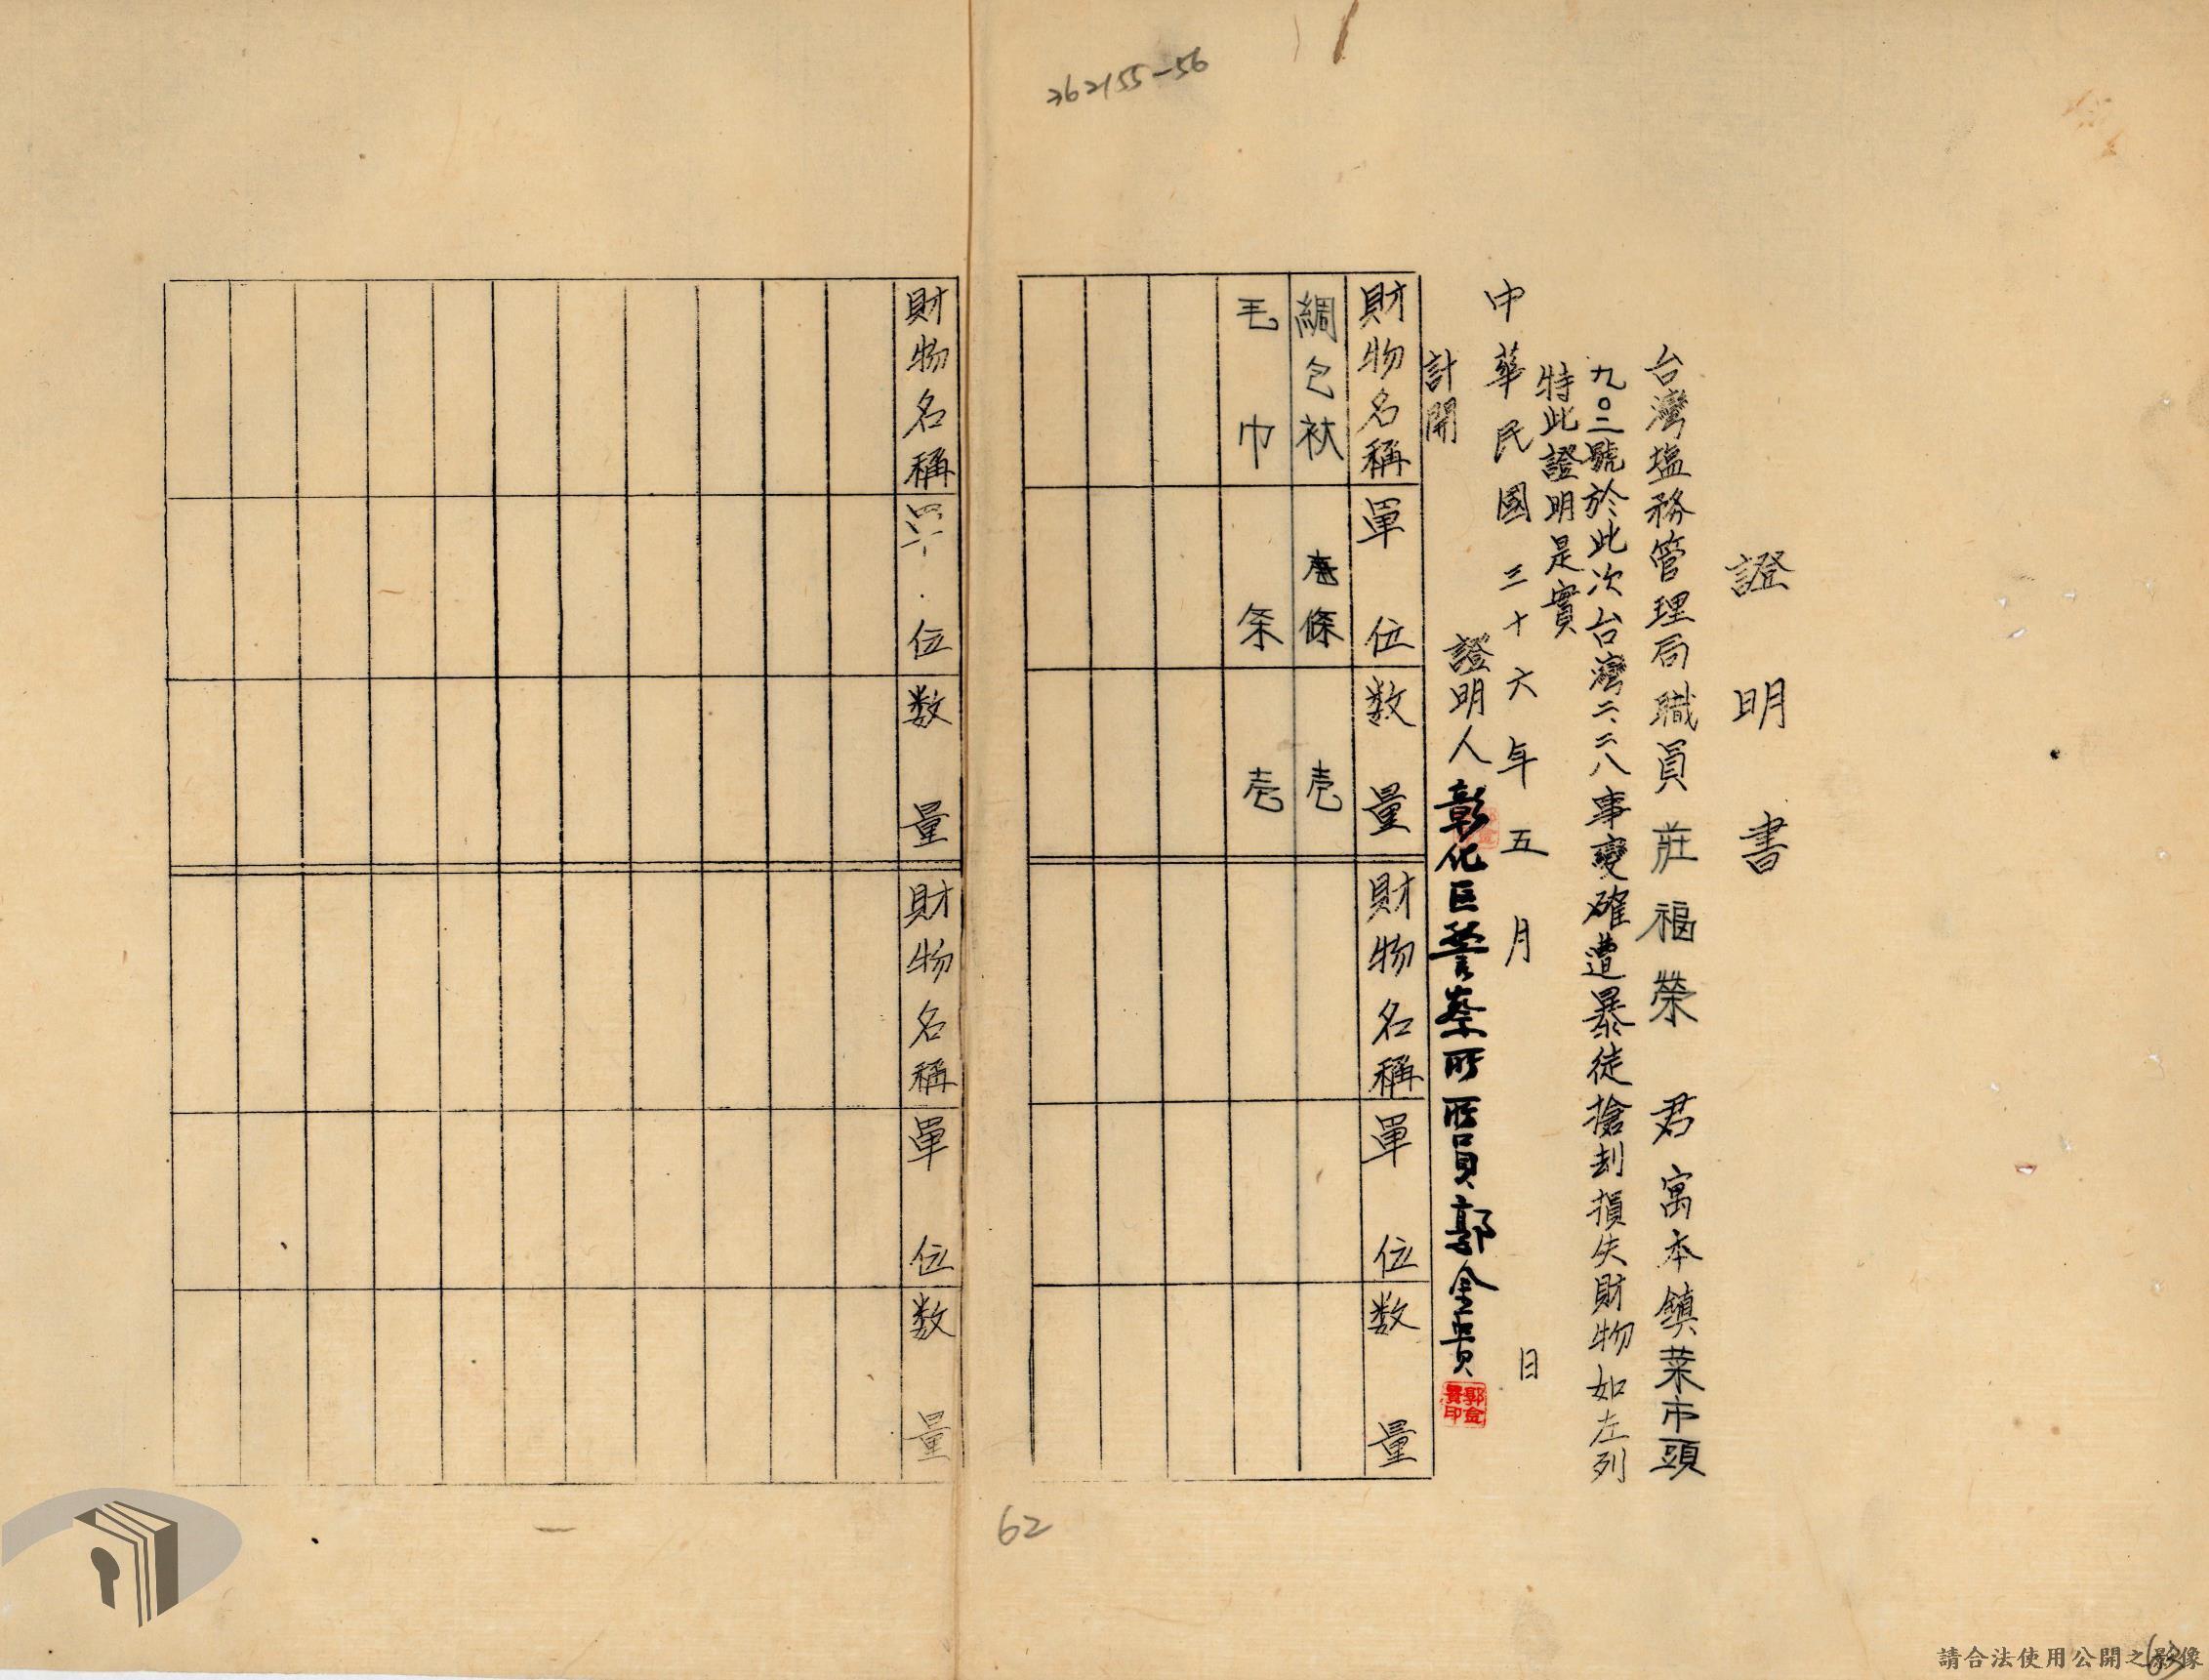 362155-56
證明書
台灣塩務管理局職員莊福榮君寓本鎮菜市頭
九〇二號於此次台灣二、二八事變確遭暴徒搶刦損失財物如左列
特此證明是實
中華民國三十六年五月日
證明人彰化區警察所所員郭金貴
郭金貴印
計開
財物名稱 單位 数量 財物名稱 單位 数量
綢包袱 壱條 壱
毛巾 条 壱
財物名稱 單位 数量 財物名稱 單位 数量
62
63
請合法使用公開之影像